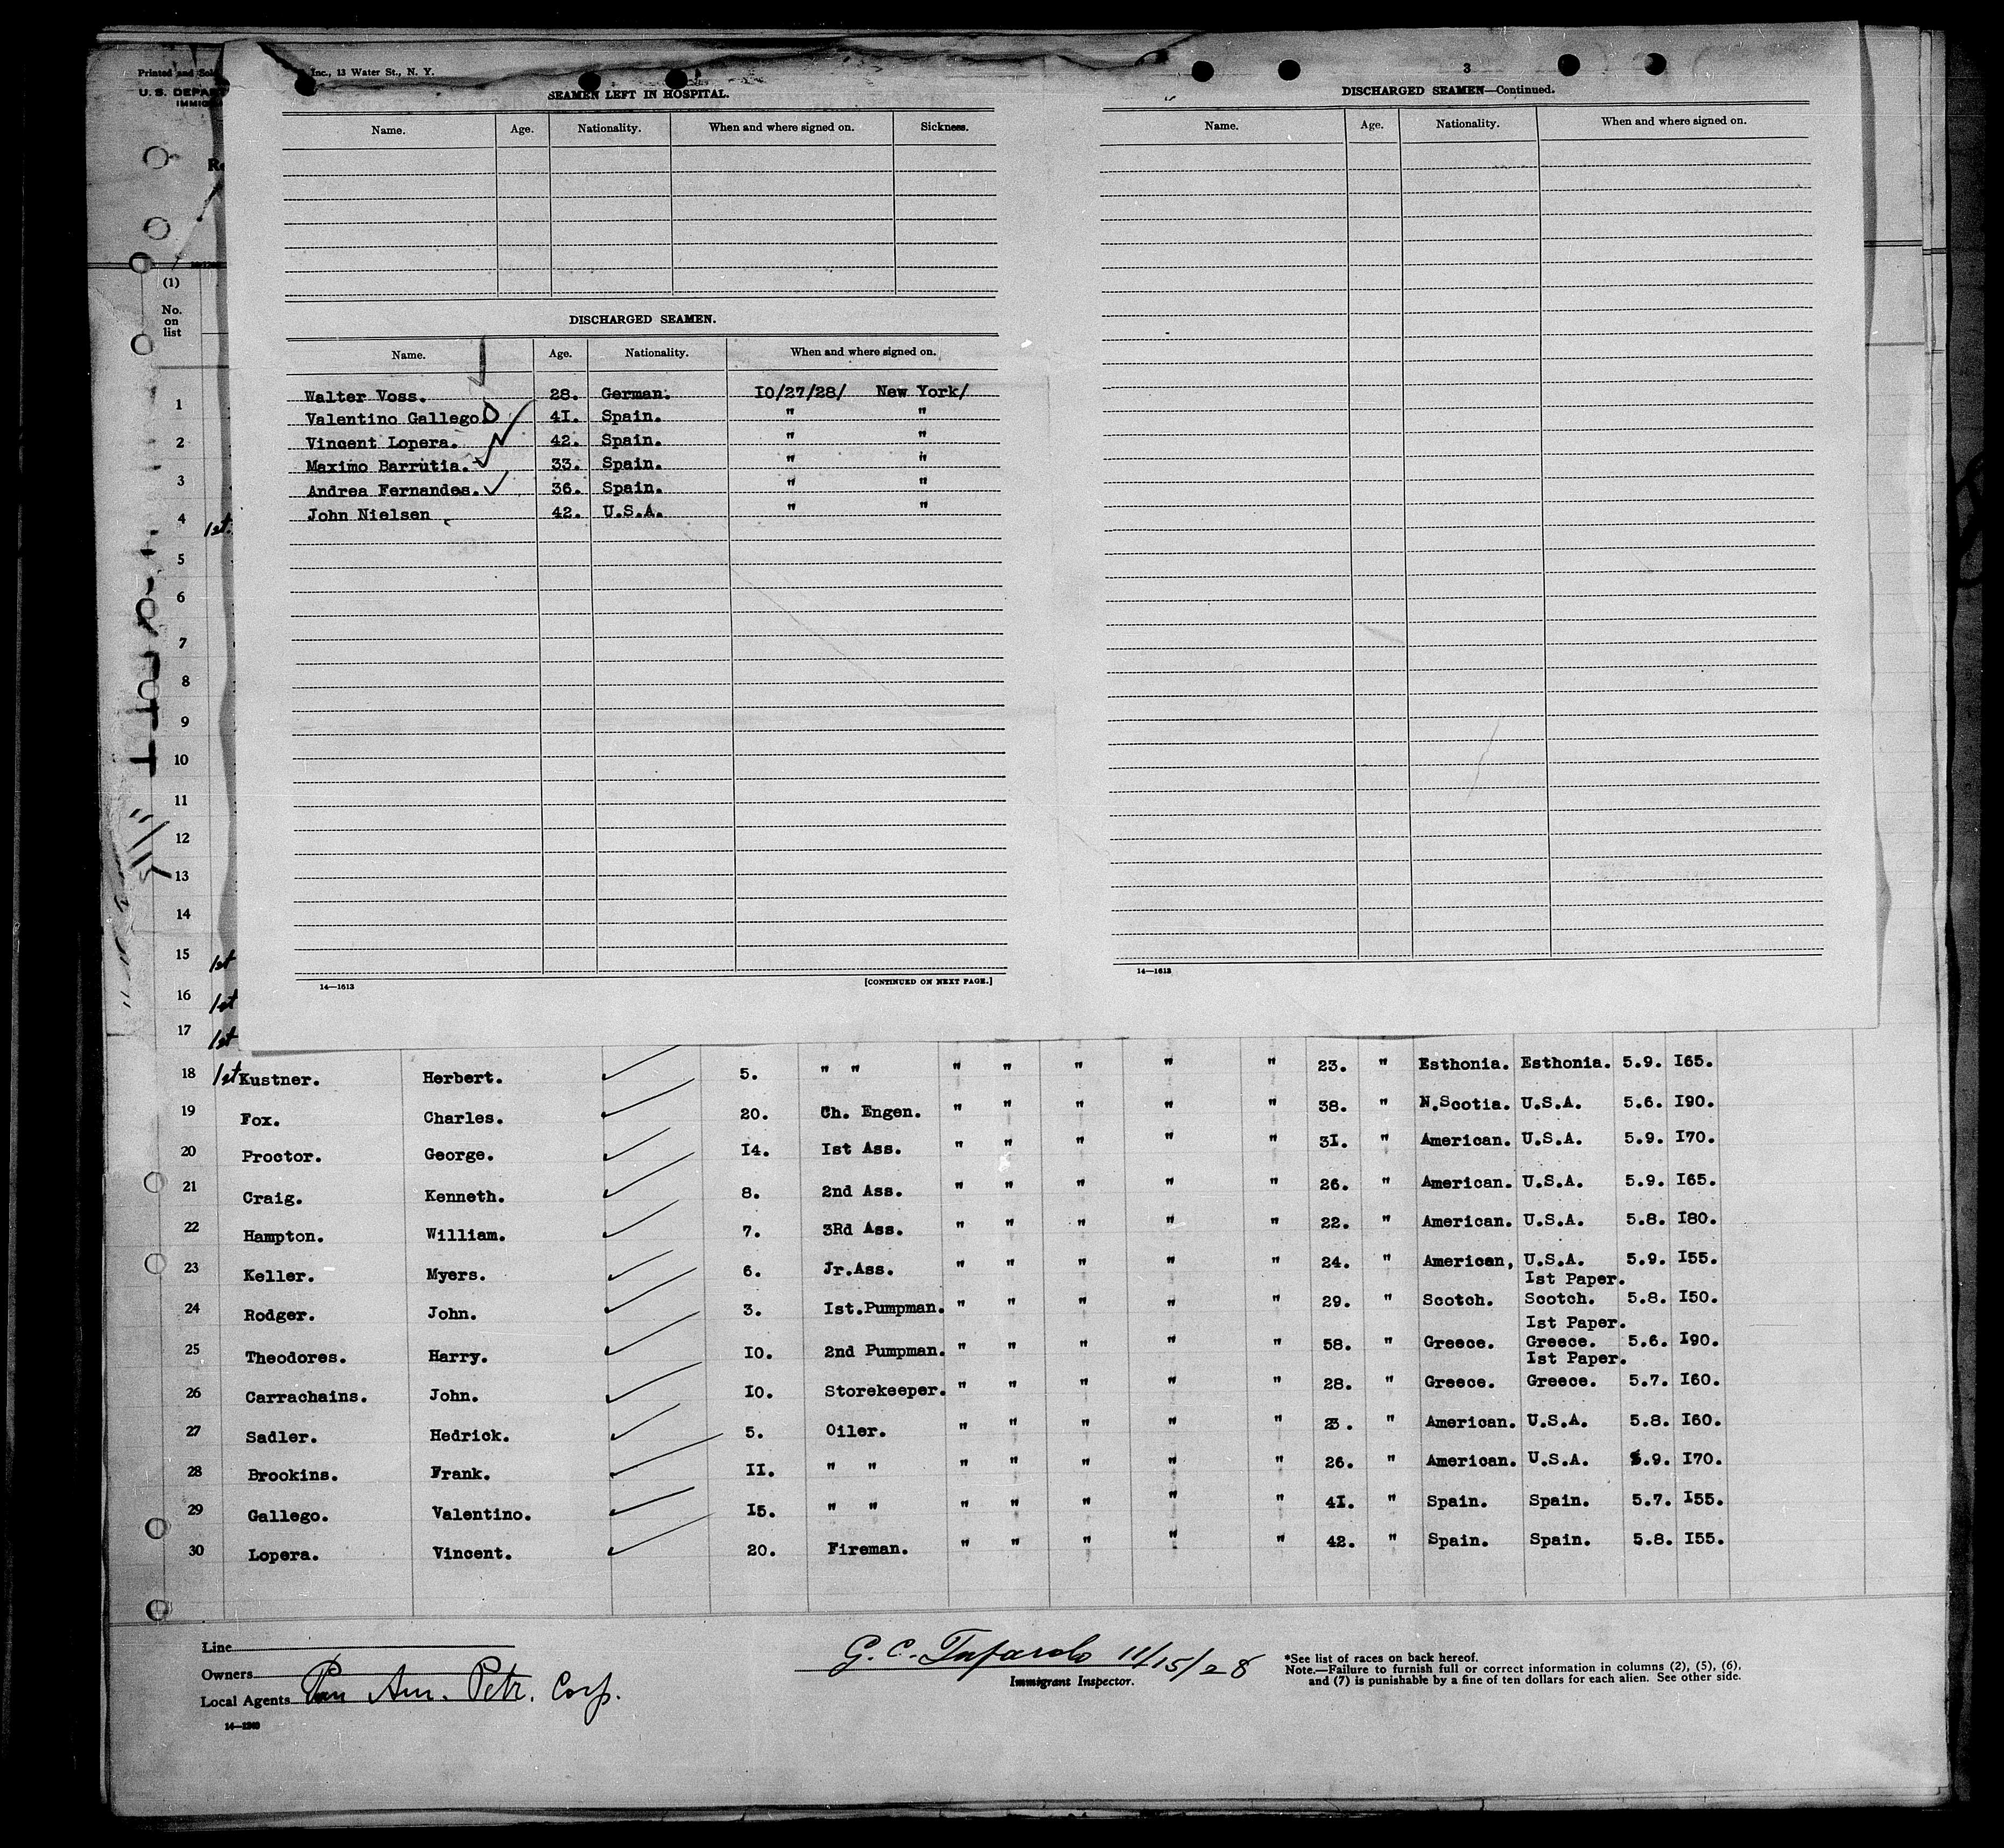 Printed and Sol
Inc., 13 Water St., N. Y.
U. S. DEPA
IMMIG
SEAMEN LEFT IN HOSPITAL.
Name. Age. Nationality. When and where signed on. Sickness.
3
DISCHARGED SEAMEN—Continued.
Name. Age. Nationality. When and where signed on.
(1)
No.
on
list
DISCHARGED SEAMEN.
Name. Age. Nationality. When and where signed on.
Walter Voss. 28. German. IO/27/28/ New York/
Valentino Gallego 4I. Spain. " "
Vincent Lopera. 42. Spain. " "
Maximo Barrutia. 33. Spain. " "
Andrea Fernandes. 36. Spain. " "
John Nielsen 42. U.S.A. " "
1
2
3
4 1st.
5
6
7
8
9
10
11
12
13
14
15 1st
16 1st
17 1st
14—1613 [CONTINUED ON NEXT PAGE.]
14—1613
18 1st Kustner. Herbert. 5. " " " " " " " 23. " Esthonia. Esthonia. 5.9. I65.
19 Fox. Charles. 20. Ch. Engen. " " " " " 38. " N.Scotia. U.S.A. 5.6. I90.
20 Proctor. George. I4. Ist Ass. " " " " " 3I. " American. U.S.A. 5.9. I70.
21 Craig. Kenneth. 8. 2nd Ass. " " " " " 26. " American. U.S.A. 5.9. I65.
22 Hampton. William. 7. 3Rd Ass. " " " " " 22. " American. U.S.A. 5.8. I80.
23 Keller. Myers. 6. Jr.Ass. " " " " " 24. " American, U.S.A. 5.9. I55.
Ist Paper.
24 Rodger. John. 3. Ist.Pumpman. " " " " " 29. " Scotch. Scotch. 5.8. I50.
Ist Paper.
25 Theodores. Harry. IO. 2nd Pumpman. " " " " " 58. " Greece. Greece. 5.6. I90.
Ist Paper.
26 Carrachains. John. IO. Storekeeper. " " " " " 28. " Greece. Greece. 5.7. I60.
27 Sadler. Hedrick. 5. Oiler. " " " " " 23. " American. U.S.A. 5.8. I60.
28 Brookins. Frank. II. " " " " " " " 26. " American. U.S.A. 5.9. I70.
29 Gallego. Valentino. I5. " " " " " " " 4I. " Spain. Spain. 5.7. I55.
30 Lopera. Vincent. 20. Fireman. " " " " " 42. " Spain. Spain. 5.8. I55.
Line
Owners
Local Agents Pan Am. Petr. Corp.
14—1240
G. C. 11/15/28
Immigrant Inspector.
*See list of races on back hereof.
Note.—Failure to furnish full or correct information in columns (2), (5), (6),
and (7) is punishable by a fine of ten dollars for each alien. See other side.